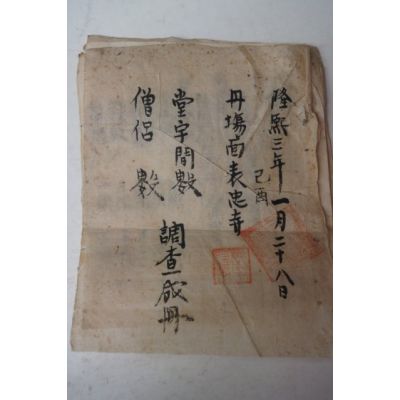 隆熙三年己酉一月二十八日
丹塲面表忠寺
堂宇間數
僧侶 數
調查成冊